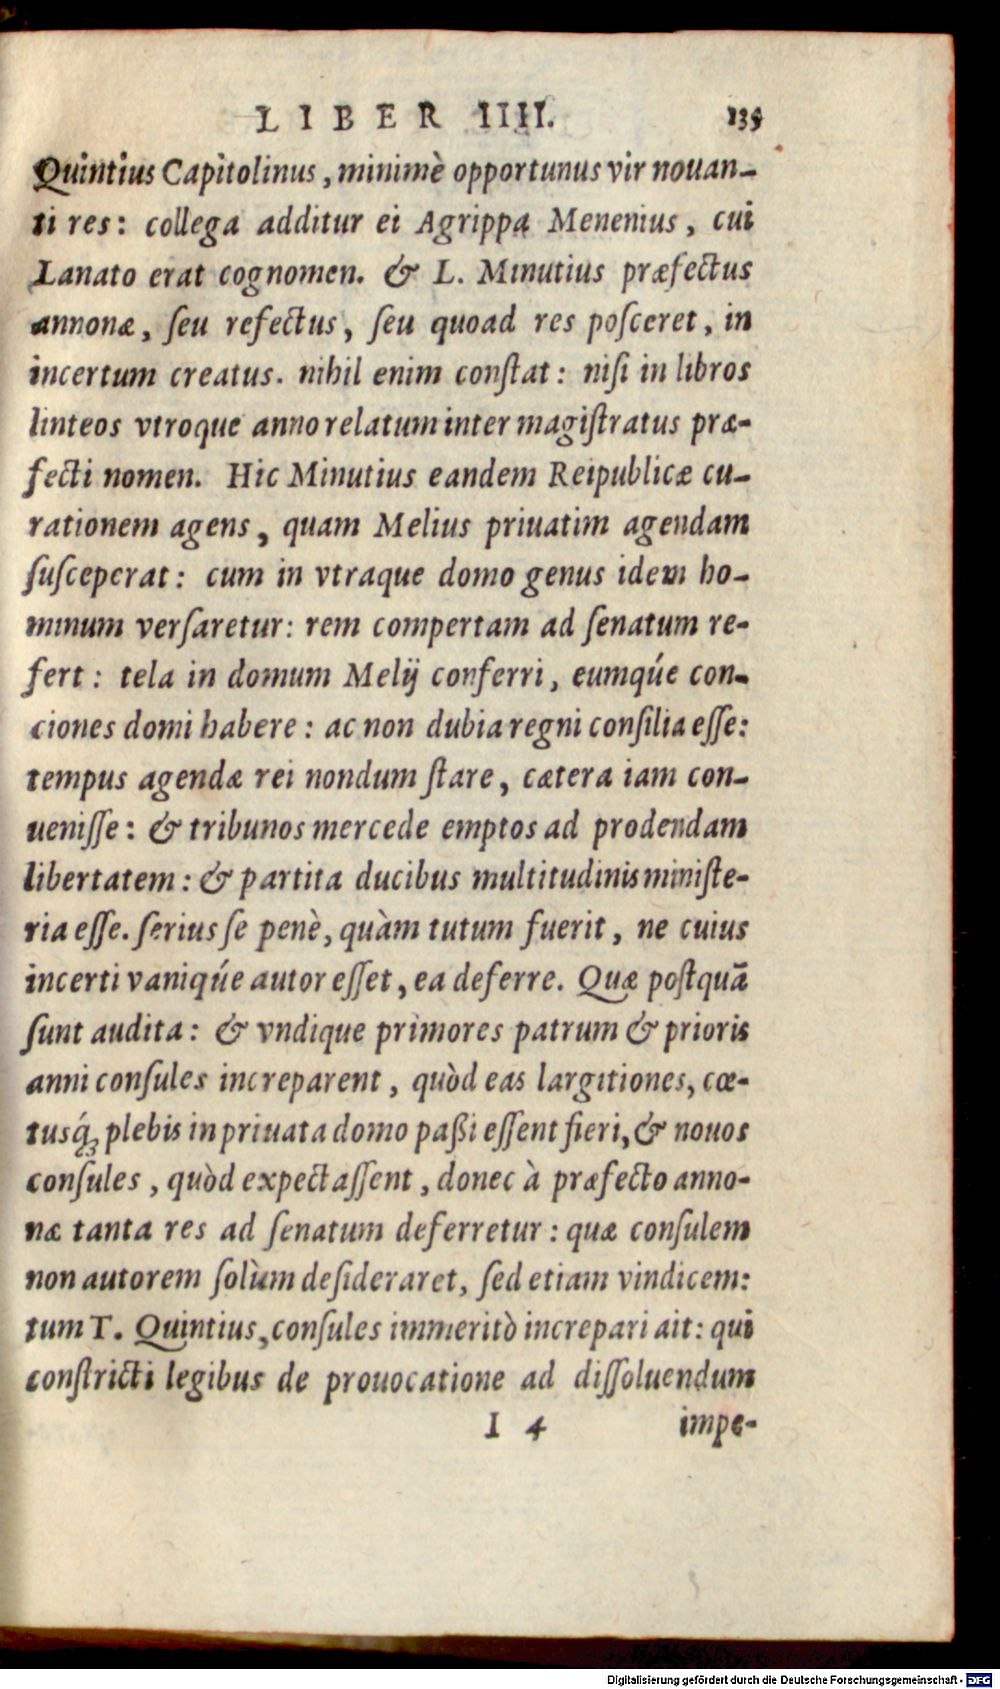 LIBER IIII. 135
Quintius Capitolinus, minimè opportunus vir nouan-
ti res: collega additur ei Agrippa Menenius, cui
Lanato erat cognomen. & L. Minutius præfectus
annonæ, ſeu refectus, ſeu quoad res poſceret, in
incertum creatus. nihil enim conſtat: niſi in libros
linteos vtroque anno relatum inter magiſtratus præ-
fecti nomen. Hic Minutius eandem Reipublicæ cu-
rationem agens, quam Melius priuatim agendam
ſuſceperat: cum in vtraque domo genus idem ho-
minum verſaretur: rem compertam ad ſenatum re-
fert: tela in domum Melij conferri, eumqúe con-
ciones domi habere: ac non dubia regni conſilia eſſe:
tempus agendæ rei nondum ſtare, cætera iam con-
ueniſſe: & tribunos mercede emptos ad prodendam
libertatem: & partita ducibus multitudinis miniſte-
ria eſſe. ſerius ſe penè, quàm tutum fuerit, ne cuius
incerti vaniqúe autor eſſet, ea deferre. Quæ poſtquã
ſunt audita: & vndique primores patrum & prioris
anni conſules increparent, quòd eas largitiones, cœ-
tusq́; plebis in priuata domo paßi eſſent fieri, & nouos
conſules, quòd expectaſſent, donec à præfecto anno-
næ tanta res ad ſenatum deferretur: quæ conſulem
non autorem ſolùm deſideraret, ſed etiam vindicem:
tum T. Quintius, conſules immeritò increpari ait: qui
conſtricti legibus de prouocatione ad diſſoluendum
I 4 impe-
Digitalisierung gefördert durch die Deutsche Forschungsgemeinschaft - DFG